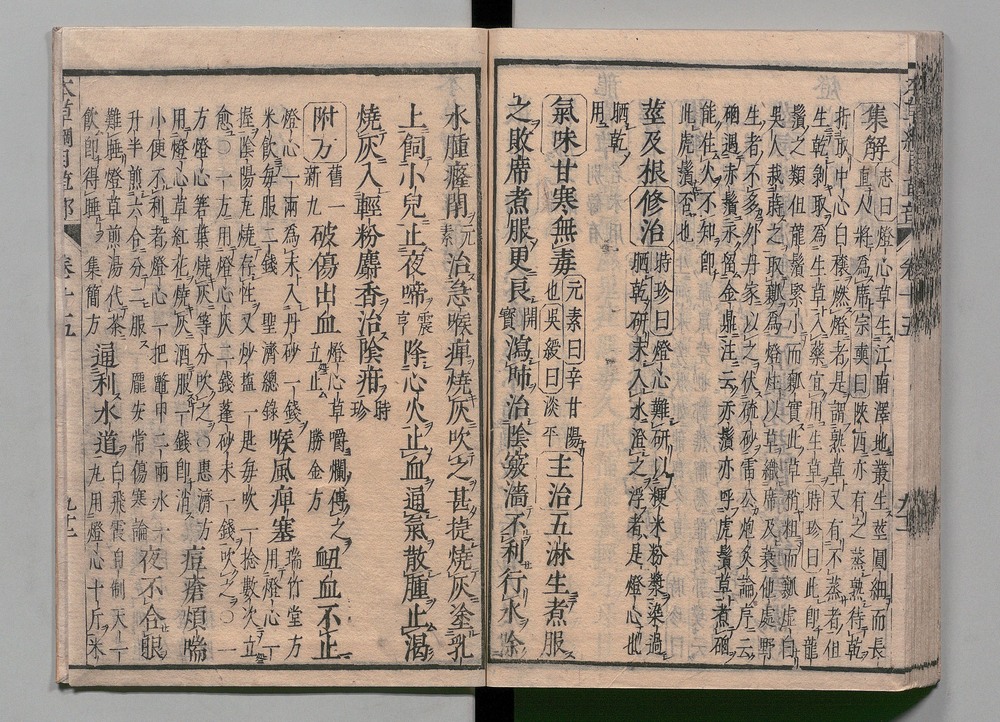 集解 志曰燈心草生江南澤地叢生莖圓細而長
直人將爲席宗奭曰陝西亦有之蒸熟待乾
折取中心白穰燃燈者是謂熟草又有不蒸者但
生乾剝取爲生草入藥宜用生草時珍曰此即龍
鬚之類但龍鬚緊小而瓤實此草稍粗而瓤虛白
吳人栽蒔之取瓤爲燈炷以草織席及蓑他處野
生者不多外丹家以之伏硫砂雷公炮炙論序云
硇遇赤鬚永留金鼎注云亦鬚亦呼虎鬚草煮硇
能住火不知即
此虎鬚否也
莖及根修治 時珍曰燈心難研以粳米粉漿染過
晒乾研末入水澄之浮者是燈心也
晒乾
用
氣味甘寒無毒 元素曰辛甘陽
也吳綬曰淡平 主治五淋生煮服
之敗席煮服更良 開
寶 瀉肺治陰竅濇不利行水除
水腫癃閉 元
素 治急喉痺燒灰吹之甚捷燒灰塗乳
上飼小兒止夜啼 震
亨 降心火止血通氣散腫止渴
燒灰入輕粉麝香治陰疳 時
珍
附方 舊一
新九 破傷出血 燈心草嚼爛傅之
立止 勝金方 衄血不止
燈心一兩爲末入丹砂一錢
米飲每服二錢 聖濟總錄 喉風痺塞 瑞竹堂方
用燈心一
握陰陽瓦燒存性又炒鹽一匙每吹一捻數次立
愈○一方用燈心灰二錢蓬砂末一錢吹之○一
方燈心箬葉燒灰等分吹之○惠濟方
用燈心草紅花燒灰酒服一錢即消 痘瘡煩喘
小便不利者燈心一把鼈甲二兩水一
升半煎六合分二服 龐安常傷寒論 夜不合眼
難睡燈草煎湯代茶
飲即得睡 集簡方 通利水道 白飛霞自制天一
丸用燈心十斤米